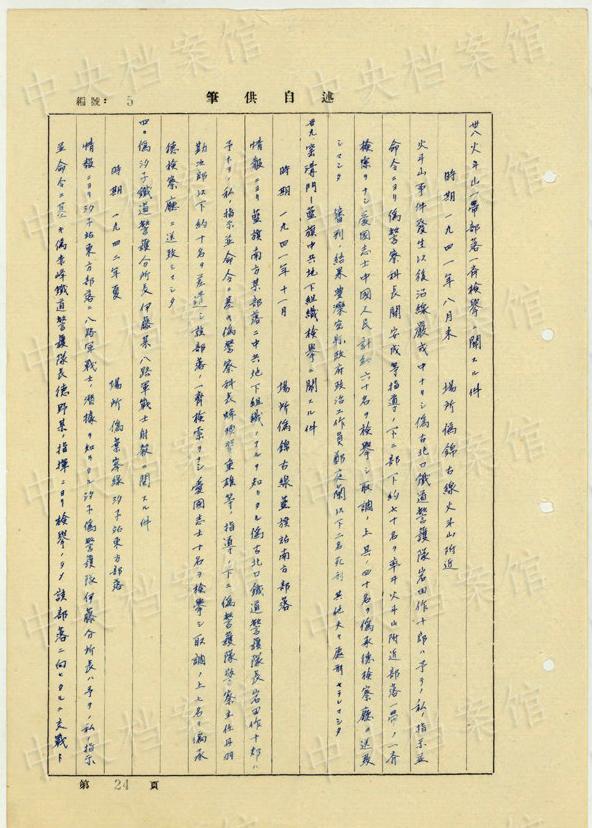 編號：5
筆供自述
廿八火斗山一帯部落一斉検挙ニ関スル件
時期 一九四一年八月末 場所 偽錦古線火斗山附近
火斗山事件発生以後沿線厳戒中ナリシ偽古北口鐵道警護隊岩田作十郎ハ予テノ私ノ指示並
命令ニヨリ偽警察科長関安成等指導ノ下ニ部下約七十名ヲ率ヰ火斗山附近部落一帯ノ一斉
検索ヲナシ愛國志士中國人民計約六十名ヲ検挙シ取調ノ上其ノ四十名ヲ偽承德検察廳ニ送致
シマシタ 審判ノ結果豊灤密縣政府政治工作員 以下二名死刑其他夫々處断セラレマシタ
廿九 溝門ー藍旗中共地下組織検挙ニ関スル件
時期 一九四一年十一月 場所 偽錦古線藍旗站南方部落
情報ニヨリ藍旗南方某部落ニ中共地下組織ノアルヲ知リタル偽古北口鐵道警護隊長岩田作十郎ハ
予テノ私ノ指示並命令ニ基キ偽警察科長 重雄等ノ指導ノ下ニ偽警護隊警察主任丹羽
勘次郎以下約十名ヲ差遣シ該部落ノ一斉検索ヲナシ愛國志士十名ヲ検挙シ取調ノ上七名ヲ偽承
德検察廳ニ送致シマシタ
四〇偽汐子鐵道警護分所長伊藤某八路軍戦士射殺ニ関スル件
時期 一九四二年夏 場所 偽葉峯線汐子站東方部落
情報ニヨリ汐子站東方部落ニ八路軍戦士ノ潜據ヲ知リタル汐子偽警護隊伊藤分所長ハ予テノ私ノ指示
並命令ニ基キ偽赤峰鐵道警護隊長德野某ノ指揮ニヨリ検挙ノタメ該部落ニ向ヒタルニ交戦ト
第24頁
中央档案馆
中央档案馆
中央档案馆
中央档案馆
中央档案馆